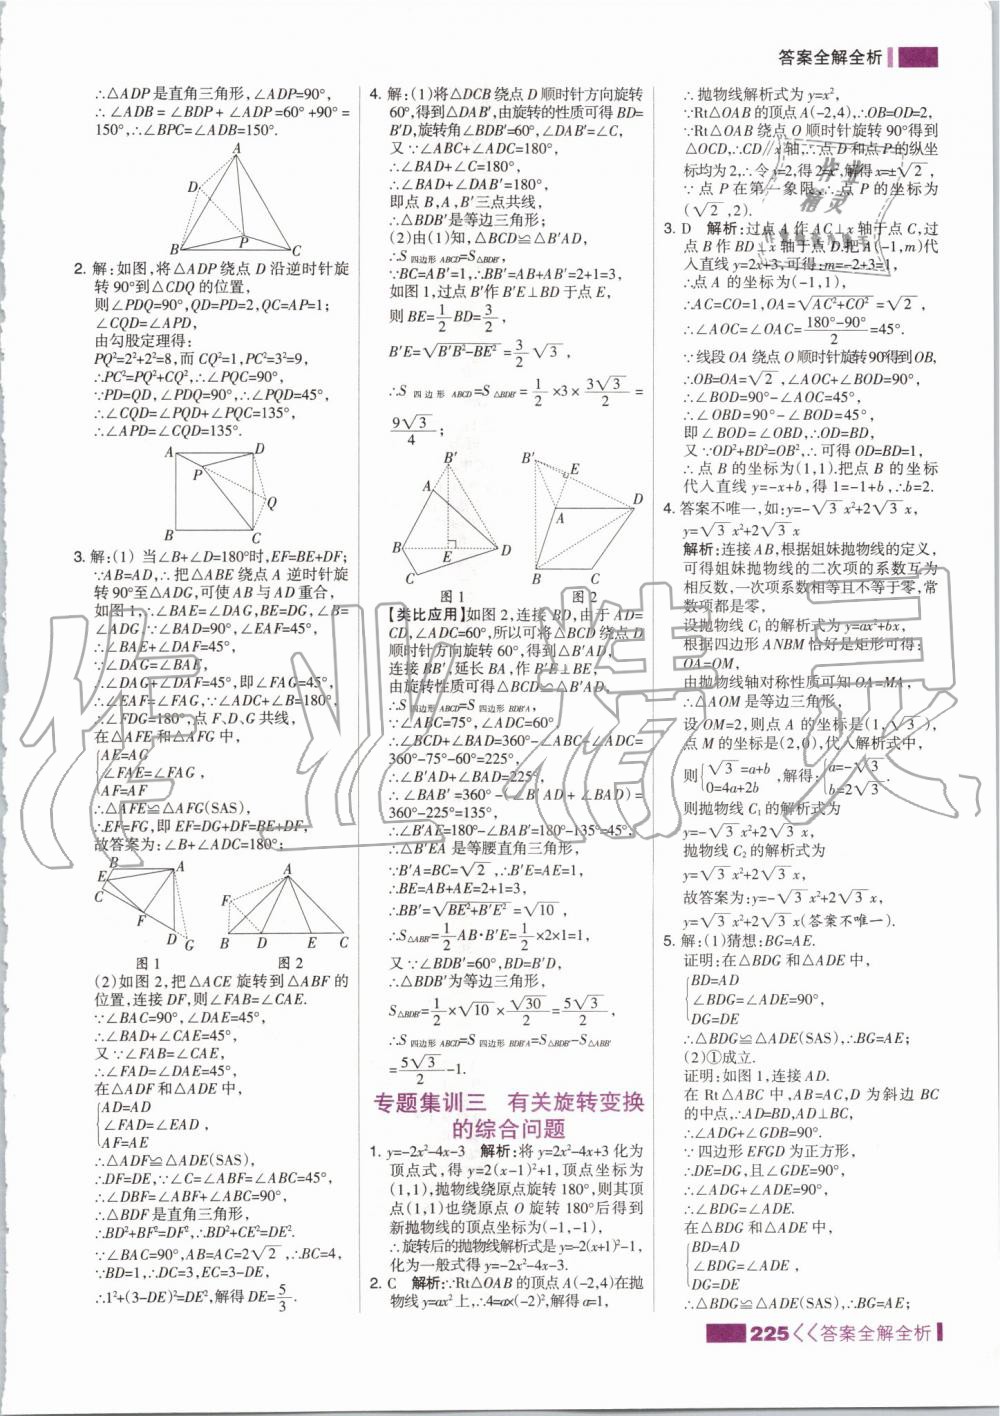 答案全解全析
∴△ADP是直角三角形,∠ADP=90°,
∴∠ADB=∠BDP+∠ADP=60°+90°=
150°,∴∠BPC=∠ADB=150°.
A
D
P
B
C
2. 解:如图,将△ADP绕点D沿逆时针旋
转90°到△CDQ的位置,
则∠PDQ=90°,QD=PD=2,QC=AP=1;
∠CQD=∠APD,
由勾股定理得:
PQ²=2²+2²=8,而CQ²=1,PC²=3²=9,
∴PC²=PQ²+CQ²,∴∠PQC=90°,
∵PD=QD,∠PDQ=90°,∴∠PQD=45°,
∴∠CQD=∠PQD+∠PQC=135°,
∴∠APD=∠CQD=135°.
A
D
P
Q
B
C
3. 解:(1) 当∠B+∠D=180°时,EF=BE+DF;
∵AB=AD,∴把△ABE绕点A逆时针旋
转90°至△ADG,可使AB与AD重合,
如图1,∴∠BAE=∠DAG,BE=DG,∠B=
∠ADG.∵∠BAD=90°,∠EAF=45°,
∴∠BAE+∠DAF=45°,
∵∠DAG=∠BAE,
∴∠DAG+∠DAF=45°,即∠FAG=45°,
∴∠EAF=∠FAG,∵∠ADC+∠B=180°,
∴∠FDG=180°,点F、D、G共线,
在△AFE和△AFG中,
AE=AG
∠FAE=∠FAG,
AF=AF
∴△AFE≌△AFG(SAS),
∴EF=FG,即EF=DG+DF=BE+DF,
故答案为:∠B+∠ADC=180°;
B
A
E
C
F
D
G
图1
A
F
B
D
E
C
图2
(2)如图2,把△ACE旋转到△ABF的
位置,连接DF,则∠FAB=∠CAE.
∵∠BAC=90°,∠DAE=45°,
∴∠BAD+∠CAE=45°,
又∵∠FAB=∠CAE,
∴∠FAD=∠DAE=45°,
在△ADF和△ADE中,
AD=AD
∠FAD=∠EAD,
AF=AE
∴△ADF≌△ADE(SAS),
∴DF=DE,∵∠C=∠ABF=45°,
∴∠DBF=∠ABF+∠ABC=90°,
∴△BDF是直角三角形,
∴BD²+BF²=DF²,∴BD²+CE²=DE².
∵∠BAC=90°,AB=AC=2√2,∴BC=4,
∵BD=1,∴DC=3,EC=3-DE,
∴1²+(3-DE)²=DE²,解得DE=5/3.
4. 解:(1)将△DCB绕点D顺时针方向旋转
60°,得到△DAB′,由旋转的性质可得BD=
B′D,旋转角∠BDB′=60°,∠DAB′=∠C,
又∵∠ABC+∠ADC=180°,
∴∠BAD+∠C=180°,
∴∠BAD+∠DAB′=180°,
即点B,A,B′三点共线,
∴△BDB′是等边三角形;
(2)由(1)知,△BCD≌△B′AD,
∴S四边形ABCD=S△BDB′,
∵BC=AB′=1,∴BB′=AB+AB′=2+1=3,
如图1,过点B′作B′E⊥BD于点E,
则BE=1/2BD=3/2,
B′E=√(B′B²-BE²)=3/2√3,
∴S四边形ABCD=S△BDB′=1/2×3×3√3/2=
9√3/4;
B′
A
B
E
D
C
图1
B′
E
D
A
B
C
图2
【类比应用】如图2,连接BD,由于AD=
CD,∠ADC=60°,所以可将△BCD绕点D
顺时针方向旋转60°,得到△B′AD,
连接BB′,延长BA,作B′E⊥BE,
由旋转性质可得△BCD≌△B′AD,
∴S四边形ABCD=S四边形BDB′A,
∵∠ABC=75°,∠ADC=60°
∴∠BCD+∠BAD=360°-∠ABC-∠ADC=
360°-75°-60°=225°,
∴∠B′AD+∠BAD=225°,
∴∠BAB′=360°-(∠B′AD+∠BAD)=
360°-225°=135°,
∴∠B′AE=180°-∠BAB′=180°-135°=45°,
∴△B′EA是等腰直角三角形,
∵B′A=BC=√2,∴B′E=AE=1,
∴BE=AB+AE=2+1=3,
∴BB′=√(BE²+B′E²)=√10,
∴S△ABB′=1/2AB·B′E=1/2×2×1=1,
又∵∠BDB′=60°,BD=B′D,
∴△BDB′为等边三角形,
S△BDB′=1/2×√10×√30/2=5√3/2,
∴S四边形ABCD=S四边形BDB′A=S△BDB′-S△ABB′
=5√3/2-1.
专题集训三 有关旋转变换
的综合问题
1. y=-2x²-4x-3 解析:将y=2x²-4x+3化为
顶点式,得y=2(x-1)²+1,顶点坐标为
(1,1),抛物线绕原点旋转180°,则其顶
点(1,1)也绕原点O旋转180°后得到
新抛物线的顶点坐标为(-1,-1),
∴旋转后的抛物线解析式是y=-2(x+1)²-1,
化为一般式得y=-2x²-4x-3.
2. C 解析:∵Rt△OAB的顶点A(-2,4)在抛
物线y=ax²上,∴4=a×(-2)²,解得a=1,
∴抛物线解析式为y=x²,
∵Rt△OAB的顶点A(-2,4),∴OB=OD=2,
∵Rt△OAB绕点O顺时针旋转90°得到
△OCD,∴CD∥x轴,∴点D和点P的纵坐
标均为2,∴令y=2,得2=x²,解得x=±√2,
∵点P在第一象限,∴点P的坐标为
(√2,2).
3. D 解析:过点A作AC⊥x轴于点C,过
点B作BD⊥x轴于点D.把A(-1,m)代
入直线y=2x+3,可得:m=-2+3=1,
∴点A的坐标为(-1,1),
∴AC=CO=1,OA=√(AC²+CO²)=√2,
∴∠AOC=∠OAC=(180°-90°)/2=45°.
∵线段OA绕点O顺时针旋转90°得到OB,
∴OB=OA=√2,∠AOC+∠BOD=90°,
∴∠BOD=90°-∠AOC=45°,
∴∠OBD=90°-∠BOD=45°,
即∠BOD=∠OBD,∴OD=BD,
又∵OD²+BD²=OB²,∴可得OD=BD=1,
∴点B的坐标为(1,1).把点B的坐标
代入直线y=-x+b,得1=-1+b,∴b=2.
4. 答案不唯一,如:y=-√3x²+2√3x,
y=√3x²+2√3x
解析:连接AB,根据姐妹抛物线的定义,
可得姐妹抛物线的二次项的系数互为
相反数,一次项系数相等且不等于零,常
数项都是零,
设抛物线C₁的解析式为y=ax²+bx,
根据四边形ANBM恰好是矩形可得:
OA=OM,
由抛物线轴对称性质可知OA=MA,
∴△AOM是等边三角形,
设OM=2,则点A的坐标是(1,√3),
点M的坐标是(2,0),代入解析式中,
则{√3=a+b 0=4a+2b,解得:{a=-√3 b=2√3.
则抛物线C₁的解析式为
y=-√3x²+2√3x,
抛物线C₂的解析式为
y=√3x²+2√3x,
故答案为:y=-√3x²+2√3x,
y=√3x²+2√3x(答案不唯一).
5. 解:(1)猜想:BG=AE.
证明:在△BDG和△ADE中,
BD=AD
∠BDG=∠ADE=90°,
DG=DE
∴△BDG≌△ADE(SAS),∴BG=AE;
(2)①成立.
证明:如图1,连接AD.
在Rt△ABC中,AB=AC,D为斜边BC
的中点,∴AD=BD,AD⊥BC,
∴∠ADG+∠GDB=90°.
∵四边形EFGD为正方形,
∴DE=DG,且∠GDE=90°,
∴∠ADG+∠ADE=90°,
∴∠BDG=∠ADE.
在△BDG和△ADE中,
BD=AD
∠BDG=∠ADE,
DG=DE
∴△BDG≌△ADE(SAS),∴BG=AE;
225<<答案全解全析
作业精灵